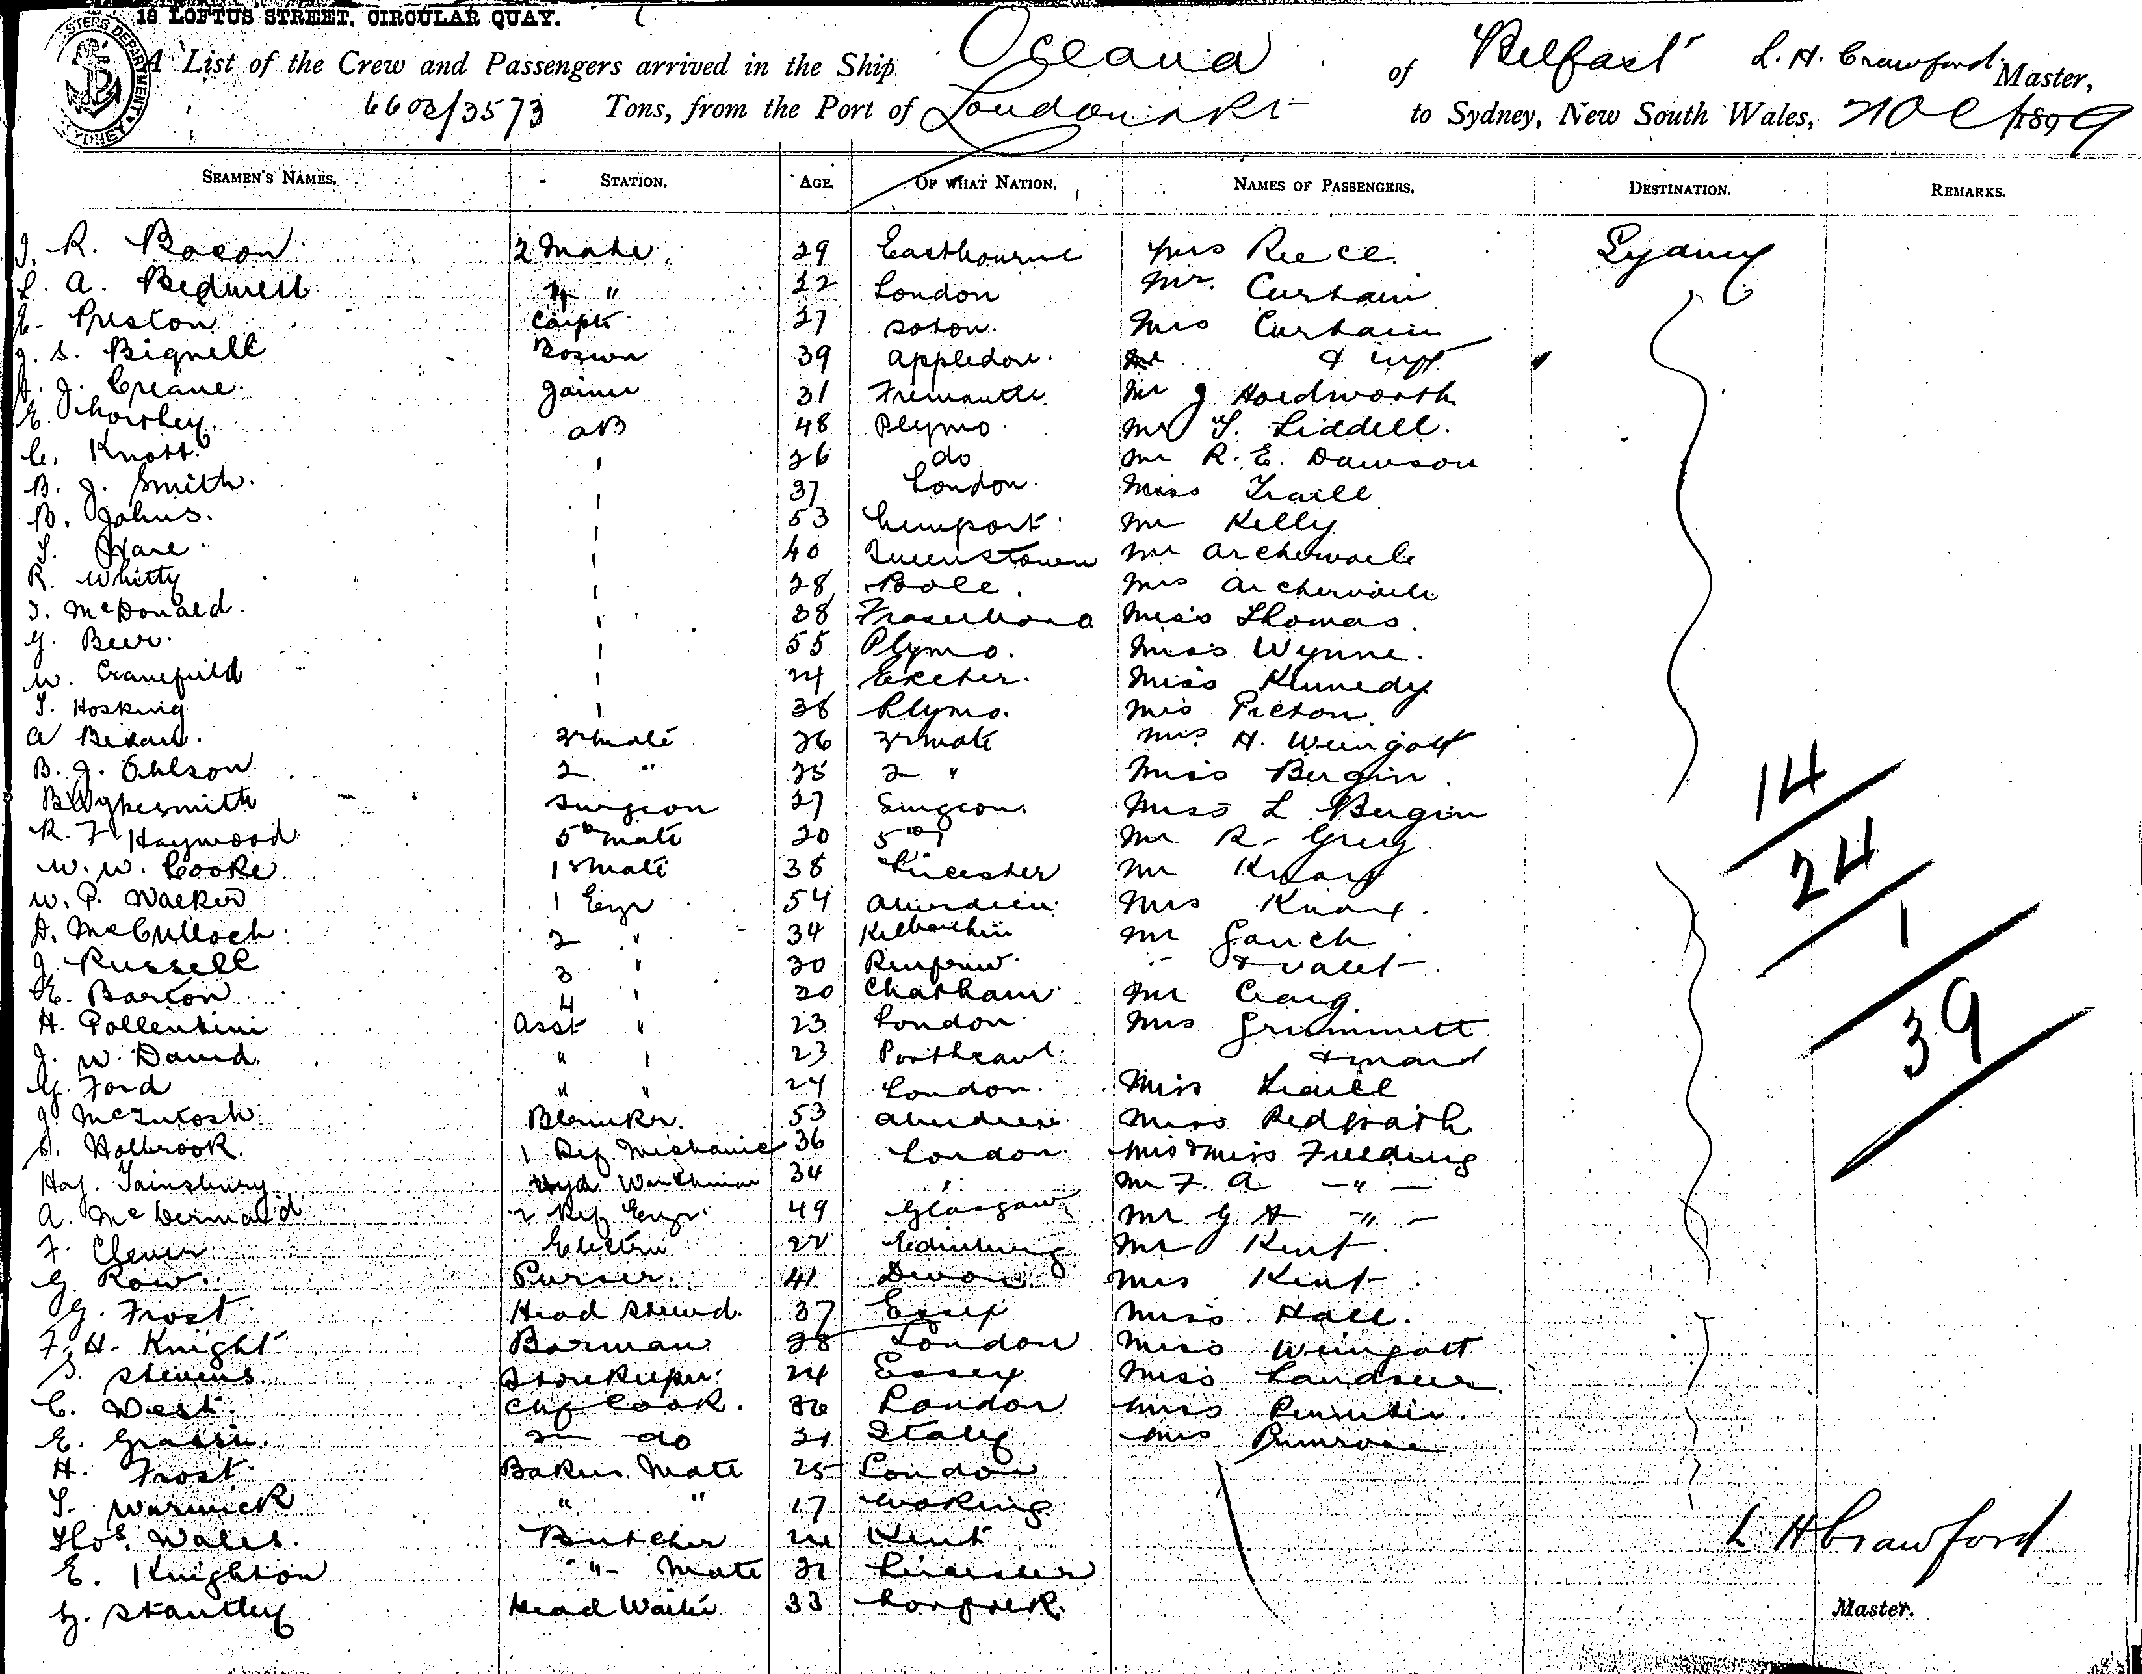 18 LOFTUS STREET, CIRCULAR QUAY.
A List of the Crew and Passengers arrived in the Ship Oceana of Belfast L. H. Crawford Master,
6602/3573 Tons, from the Port of London to Sydney, New South Wales, 1899
SEAMEN'S NAMES. STATION. AGE. OF WHAT NATION. NAMES OF PASSENGERS. DESTINATION. REMARKS.
R. Bacon 2 Mate 29 Eastbourne Mrs Reece Sydney
A. Bedwell 4 " 22 London Mr. Curtain
Preston Carptr 27 Soton. Mrs Curtain
J. S. Bignell Bosun 39 Appledore & inft
J. Creane 31 Fremantle Mr J Holdsworth
E. Shortley AB 48 Plymo Mr S. Liddell.
C. Knott 26 do Mr R. E. Dawson
B. J. Smith. 37 London Miss Traill
B. Johns. 53 Mr Kelly
S. Hare 40 Queenstown Mr
R. Whitty 28 Poole. Mrs
J. McDonald. 38 Miss Thomas.
G. Beer. 55 Plymo. Miss Wynne.
W. Cranefield 24 Exeter. Miss Kennedy
S. Hosking 38 Plymo. Mrs Picton.
A 3r mate 26 3r mate Mrs H. Weingott
B. J. Ohlson 2 " 25 2 " Miss Bergin
B Wykesmith Surgeon 27 Surgeon Miss L Bergin
R. F Haywood 5th mate 20 5th " Mr R. Greig
W. W. Cooke 1st mate 38 Leicester Mr Knox
W. P. Walker 1 Engr 54 Aberdeen Mrs Knox.
A. McCulloch 2 " 34 Kilbarchan Mr Gauch
J. Russell 3 " 30 Renfrew & valet
E. Barton 4 " 20 Chatham Mr Craig
H. Pollentini Asst " 23 London Mrs Grimmett
J. W. David " " 23 Porthcawl & maid
G. Ford " " 24 London Miss Traill
J. McIntosh 53 Aberdeen Miss Redpath
S. Holbrook. 1 Ref. Mechanic 36 London Mrs & Miss Fielding
Hy. Sainsbury 34 " Mr F. A — " —
A. McDermaid 2 Ref Engr. 49 Glasgow Mr G H — " —
F. 22 Edinburg Mr Kent.
G Row. Purser. 41 Devon Mrs Kent
G. Frost Head Stewd. 37 Essex Miss Hall.
F. H. Knight Barman 28 London Miss Weingott
S. Stevens Storekeeper. 24 Essex Miss Landseer
C. West. Chf Cook. 36 London Miss
E. Grassi 2 do Italy Mrs Primrose
H. Frost Bakers Mate 25 London
S. Warwick " " 17 Woking
Thos. Wales. Butcher 24 Kent
E. Knighton " Mate Leicester
G. Stantley Head Waiter 33 Norfolk.
14
24
1
39
L H Crawford
Master.